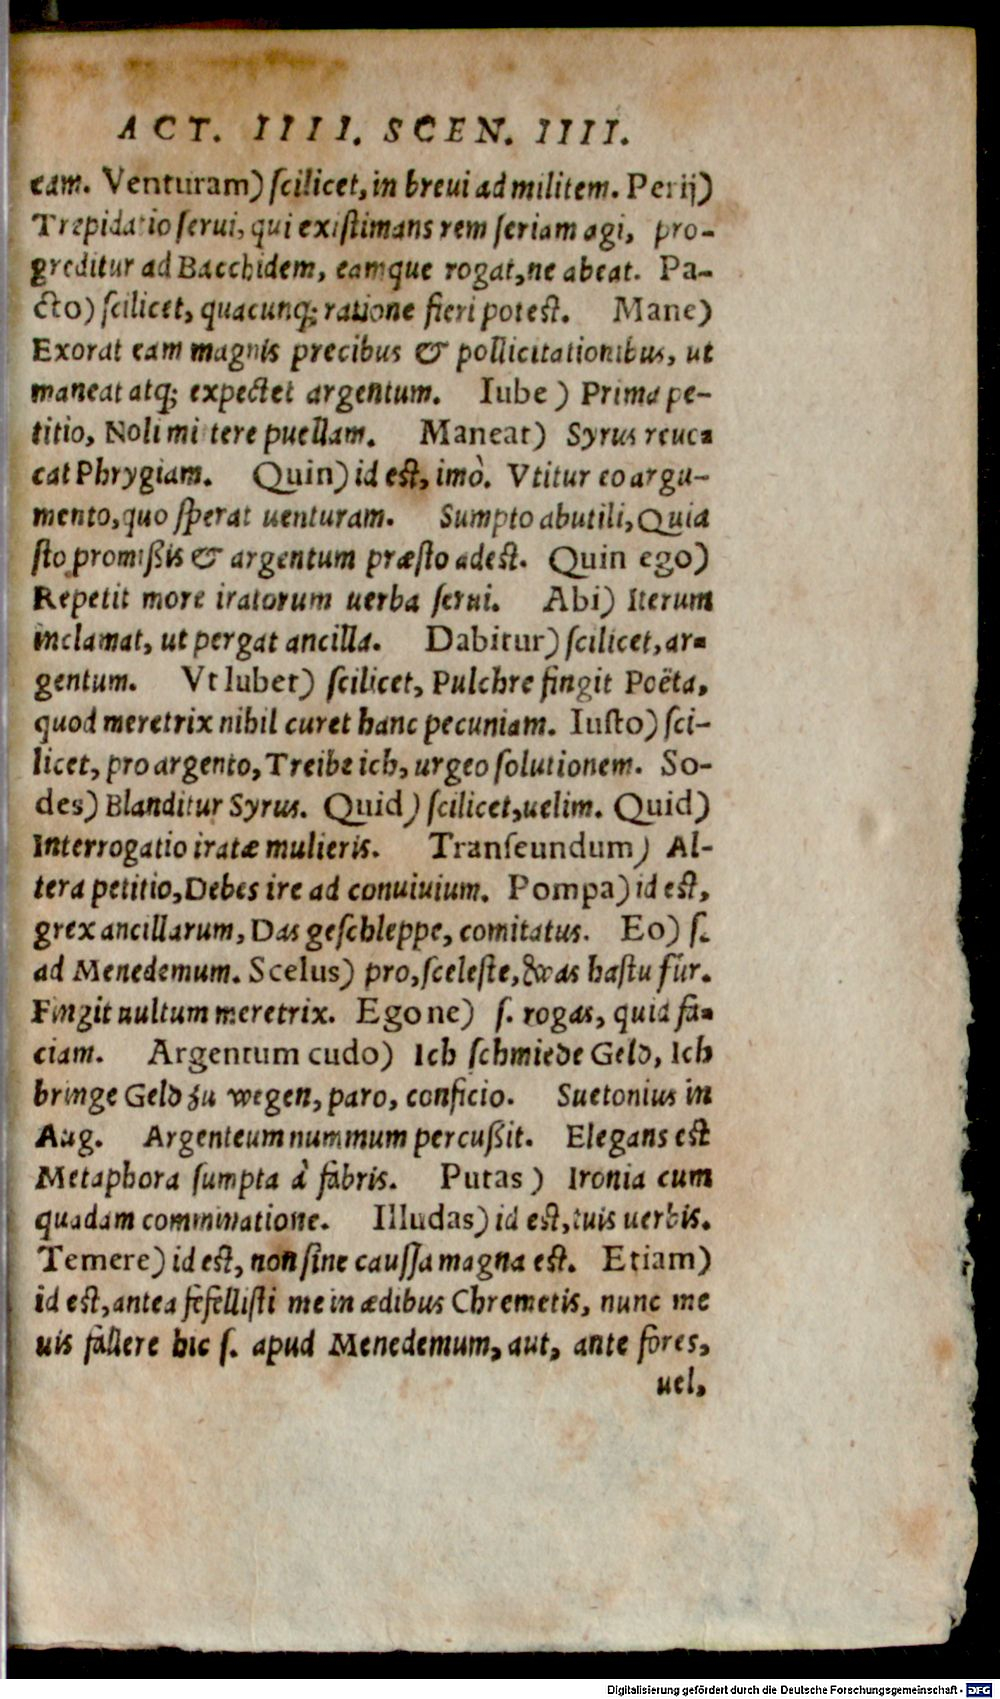 ACT. IIII. SCEN. IIII.
eam. Venturam) ſcilicet, in breui ad militem. Perij)
Trepidatio ſerui, qui exiſtimans rem ſeriam agi, pro-
greditur ad Bacchidem, eamque rogat, ne abeat. Pa-
cto) ſcilicet, quacunq; ratione fieri poteſt. Mane)
Exorat eam magnis precibus & pollicitationibus, ut
maneat atq; expectet argentum. Iube) Prima pe-
titio, Noli mittere puellam. Maneat) Syrus reuo-
cat Phrygiam. Quin) id eſt, imò. Vtitur eo argu-
mento, quo ſperat uenturam. Sumpto abutili, Quia
ſto promißis & argentum præſto adeſt. Quin ego)
Repetit more iratorum uerba ſerui. Abi) Iterum
inclamat, ut pergat ancilla. Dabitur) ſcilicet, ar-
gentum. Vt lubet) ſcilicet, Pulchre fingit Poëta,
quod meretrix nihil curet hanc pecuniam. Iuſto) ſci-
licet, pro argento, Treibe ich, urgeo ſolutionem. So-
des) Blanditur Syrus. Quid) ſcilicet, uelim. Quid)
Interrogatio iratæ mulieris. Tranſeundum) Al-
tera petitio, Debes ire ad conuiuium. Pompa) id eſt,
grex ancillarum, Das geſchleppe, comitatus. Eo) ſ.
ad Menedemum. Scelus) pro, ſceleſte, was haſtu für.
Fingit uultum meretrix. Egone) ſ. rogas, quid fa-
ciam. Argentum cudo) Ich ſchmiede Geld, Ich
bringe Geld zu wegen, paro, conficio. Suetonius in
Aug. Argenteum nummum percußit. Elegans eſt
Metaphora ſumpta à fabris. Putas) Ironia cum
quadam comminatione. Illudas) id eſt, tuis uerbis.
Temere) id eſt, non ſine cauſſa magna eſt. Etiam)
id eſt, antea fefelliſti me in ædibus Chremetis, nunc me
uis fallere hic ſ. apud Menedemum, aut, ante fores,
uel,
Digitalisierung gefördert durch die Deutsche Forschungsgemeinschaft - DFG